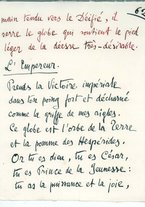 main tendu vers le Défié, il
serre le globe qui soutient le pied
léger de la déesse très-désirable.
L'Empereur.
Prends la Victoire impériale
dans ton poing fort et décharné
comme la griffe de nos aigles.
Ce globe est l'orbe de la terre
et la pomme des Hespérides.
Or tu es dieu, tu es César,
tu es Prince de la Jeunesse:
tu as la puissance et la joie,